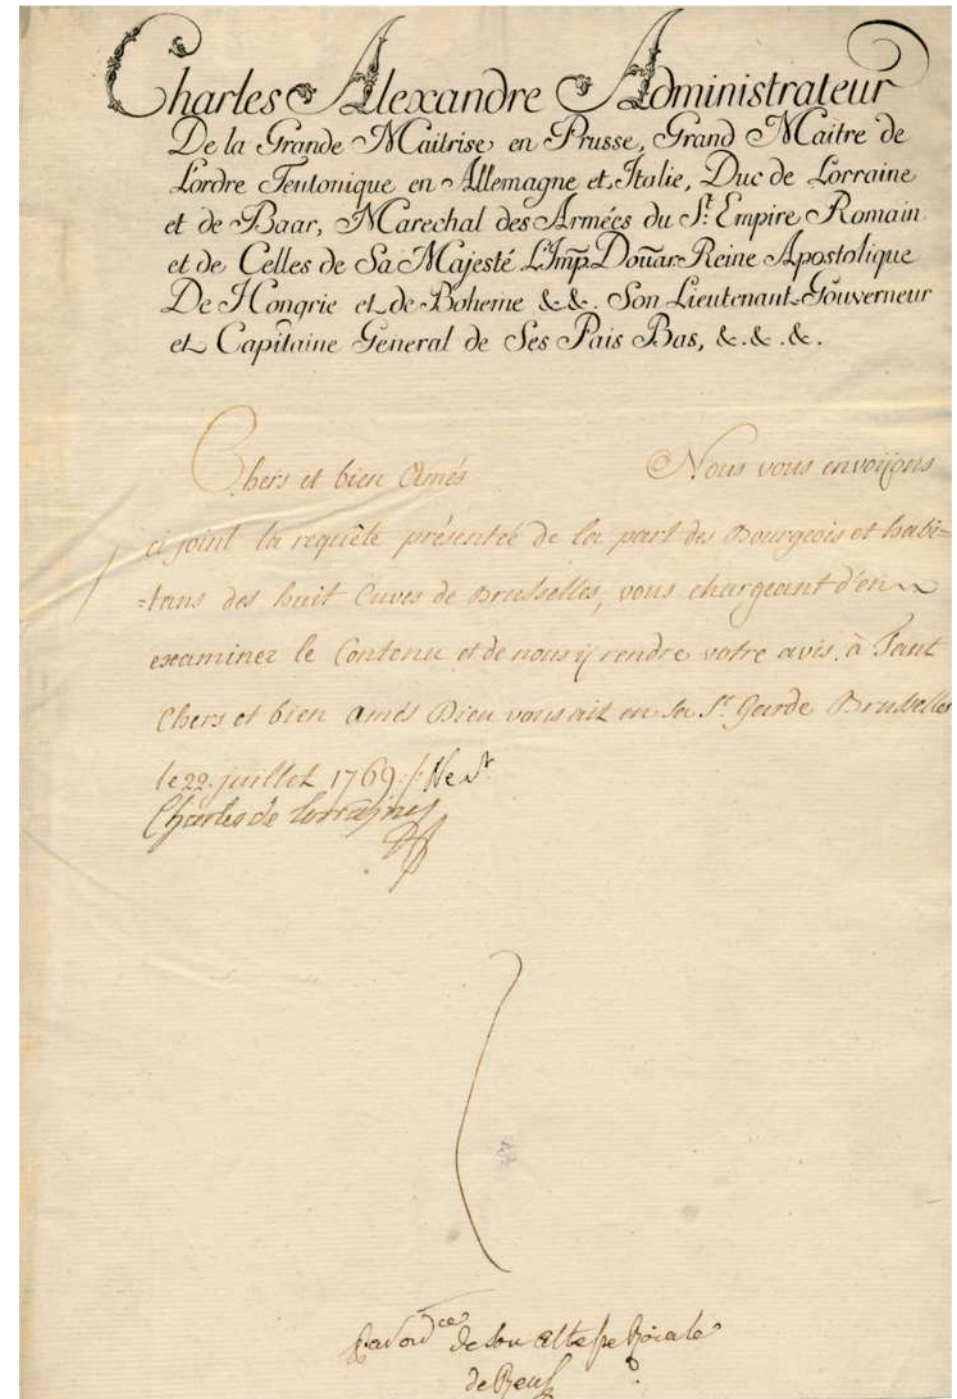 Charles Alexandre Administrateur
De la Grande Maitrise en Prusse, Grand Maitre de
L'ordre Teutonique en Allemagne et Italie, Duc de Lorraine
et de Baar, Marechal des Armées du St. Empire Romain
et de Celles de Sa Majesté L'Imp. Doüar. Reine Apostolique
De Hongrie et de Boheme &. &. Son Lieutenant Gouverneur
et Capitaine General de Ses Pais Bas, &. &. &.
Chers et bien Amés Nous vous envoijons
ci joint la requête présentée de la part des Bourgeois et habi=
=tans des huit Cuves de Brusselles, vous chargeant d'en
examiner le Contenu et de nous ij rendre votre avis. à Tant
Chers et bien amés Dieu vous ait en sa Ste. Garde Brusselles
le 22. juillet 1769 /: Ne vt.
Charles de Lorraine
Par ordce. de Son Altesse Roiale
de Reul